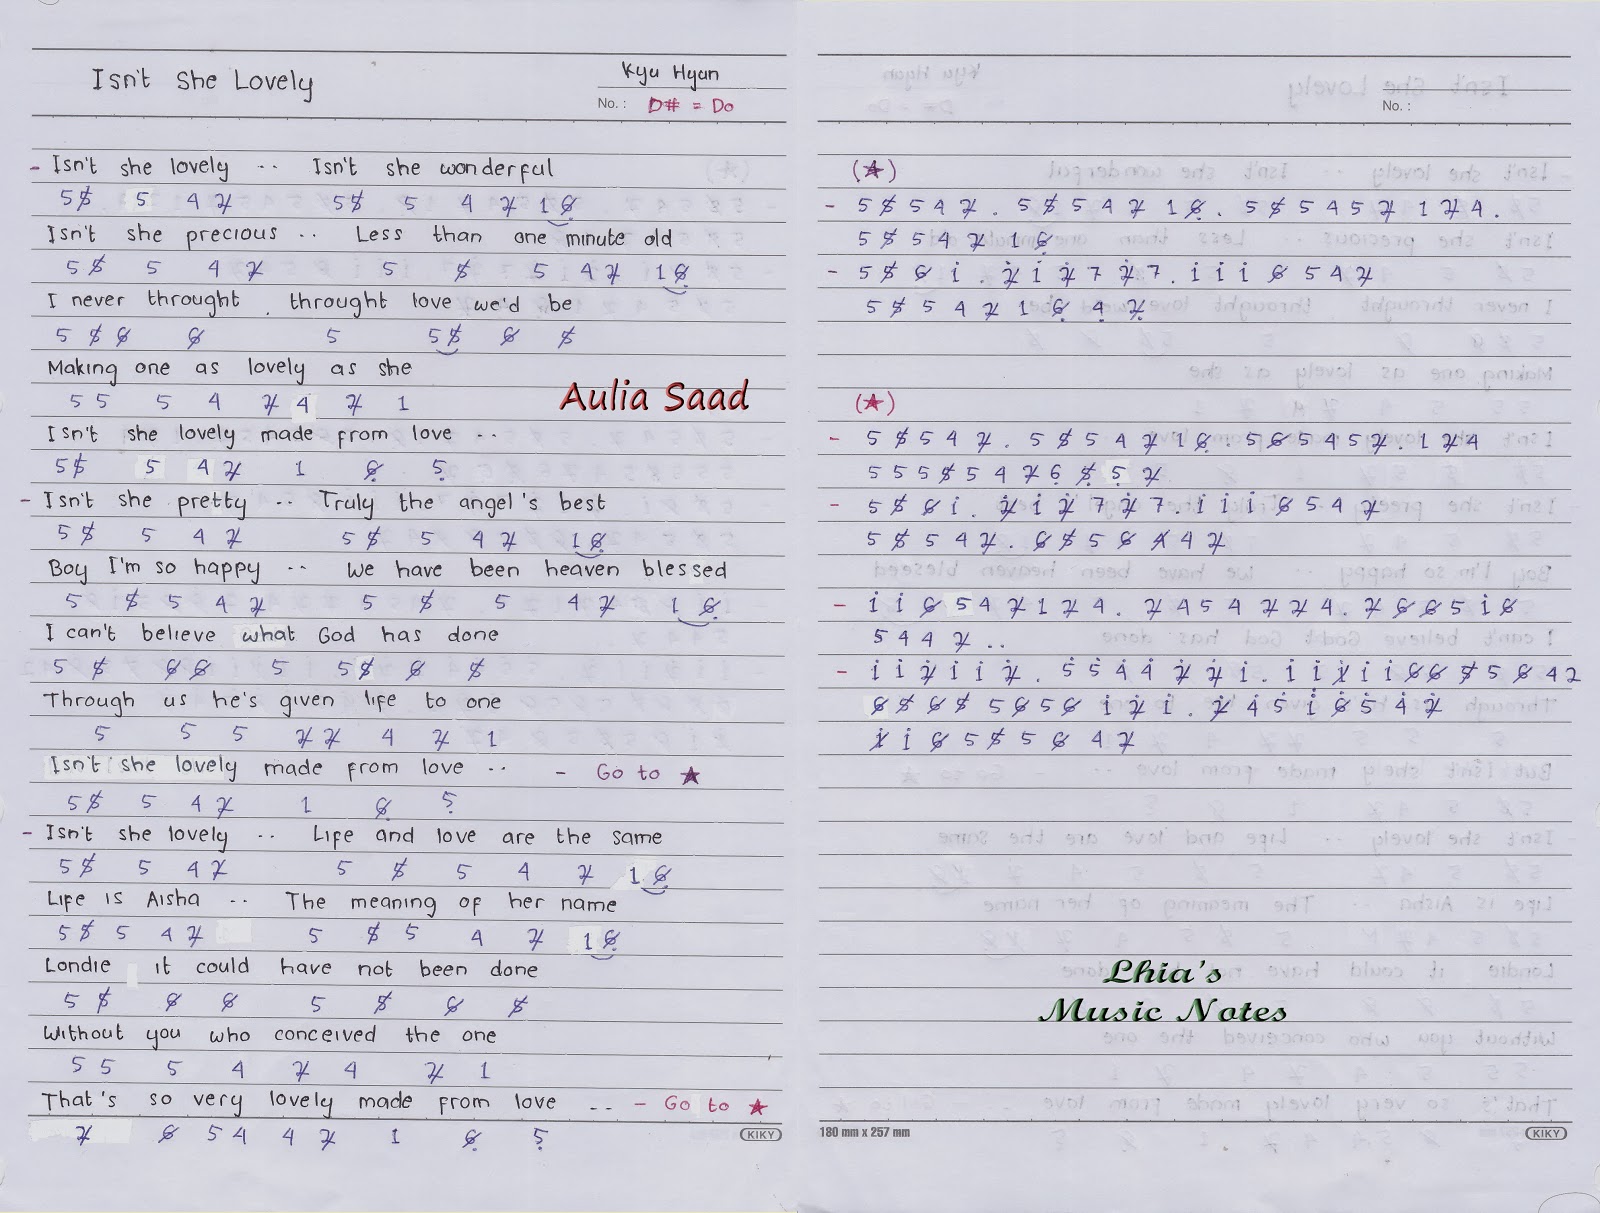 Isn't She Lovely
Kyu Hyun
No. : D# = Do
- Isn't she lovely .. Isn't she wonderful
5 5̸ 5 4 2̸ 5 5̸ 5 4 2̸ 1 6̸̣
Isn't she precious .. Less than one minute old
5 5̸ 5 4 2̸ 5 5̸ 5 4 2̸ 1 6̸̣
I never throught . throught love we'd be
5 5̸ 6̸ 6̸ 5 5 5̸ 6̸ 5̸
Making one as lovely as she
5 5 5 4 2̸ 4 2̸ 1
Isn't she lovely made from love ..
5 5̸ 5 4 2̸ 1 6̸̣ 5̣
- Isn't she pretty .. Truly the angel's best
5 5̸ 5 4 2̸ 5 5̸ 5 4 2̸ 1 6̸̣
Boy I'm so happy .. We have been heaven blessed
5 5̸ 5 4 2̸ 5 5̸ 5 4 2̸ 1 6̸̣
I can't believe what God has done
5 5̸ 6̸ 6̸ 5 5 5̸ 6̸ 5̸
Through us he's given life to one
5 5 5 2̸ 2̸ 4 2̸ 1
Isn't she lovely made from love .. - Go to ★
5 5̸ 5 4 2̸ 1 6̸̣ 5̣
- Isn't she lovely .. Life and love are the same
5 5̸ 5 4 2̸ 5 5̸ 5 4 2̸ 1 6̸̣
Life is Aisha .. The meaning of her name
5 5̸ 5 4 2̸ 5 5̸ 5 4 2̸ 1 6̸̣
Londie it could have not been done
5 5̸ 6̸ 6̸ 5 5̸ 6̸ 5̸
Without you who conceived the one
5 5 5 4 2̸ 4 2̸ 1
That's so very lovely made from love .. - Go to ★
2̸ 6̸ 5 4 4 2̸ 1 6̸̣ 5̣
KIKY
Aulia Saad
No. :
(★)
- 5 5̸ 5 4 2̸ . 5 5̸ 5 4 2̸ 1 6̸̣ . 5 5̸ 5 4 5 2̸ 1 2̸ 4 .
5 5̸ 5 4 2̸ 1 6̸̣
- 5 5̸ 6̸ 1̇ . 2̸̇ 1̇ 2̸̇ 7 2̸̇ 7 . 1̇ 1̇ 1̇ 6̸ 5 4 2̸
5 5̸ 5 4 2̸ 1 6̸̣ 4̣ 2̸̣
(★)
- 5 5̸ 5 4 2̸ . 5 5̸ 5 4 2̸ 1 6̸̣ . 5 6̸ 5 4 5 2̸ . 1 2̸ 4
5 5 5 5̸ 5 4 2̸ 6̣ 5̸̣ 5̣ 2̸
- 5 5̸ 6̸ 1̇ . 2̸̇ 1̇ 2̸̇ 7 2̸̇ 7 . 1̇ 1̇ 1̇ 6̸ 5 4 2̸
5 5̸ 5 4 2̸ . 6̸ 5̸ 5 6̸ 4 2̸
- 1̇ 1̇ 6̸ 5 4 2̸ 1 2̸ 4 . 2̸ 4 5 4 2̸ 2̸ 4 . 2̸ 6̸ 6̸ 5 1̇ 6̸
5 4 4 2̸ ..
- 1̇ 1̇ 2̸̇ 1̇ 1̇ 2̸̇ . 5̇ 5̇ 4̇ 4̇ 2̸̇ 2̸̇ 1̇ . 1̇ 1̇ 1̸̇ 1̇ 1̇ 6̸ 6̸ 5̸ 5 6̸ 4 2
6̸ 5̸ 6̸ 5̸ 5 6̸ 5 6̸ 1̇ 2̸̇ 1̇ . 2̸̇ 4̇ 5̇ 1̇ 6̸̇ 5̇ 4̇ 2̸̇
1̸̇ 1̇ 6̸ 5 5̸ 5 6̸ 4 2̸
Lhia's
Music Notes
180 mm x 257 mm
KIKY